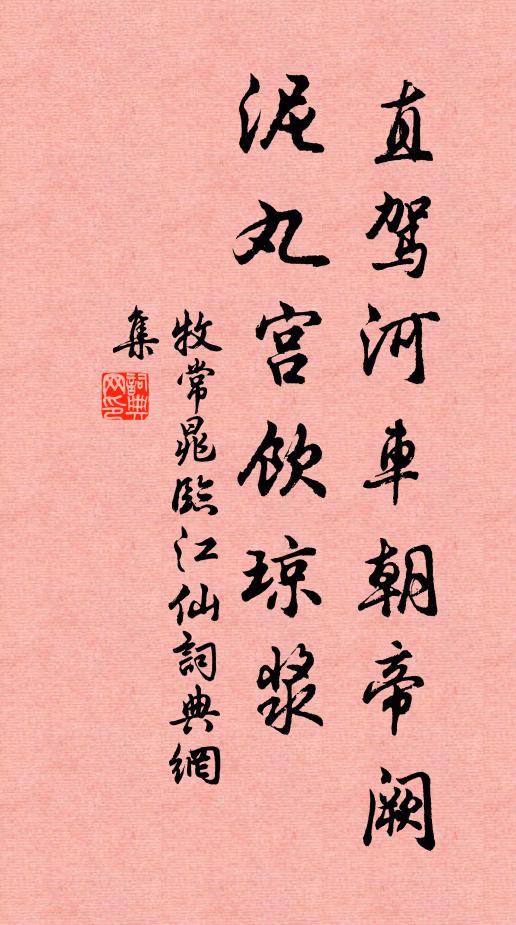 直駕河車朝帝闕
泥丸宮飲琼漿
牧常晁臨江仙詞典網
集
詞典
网印